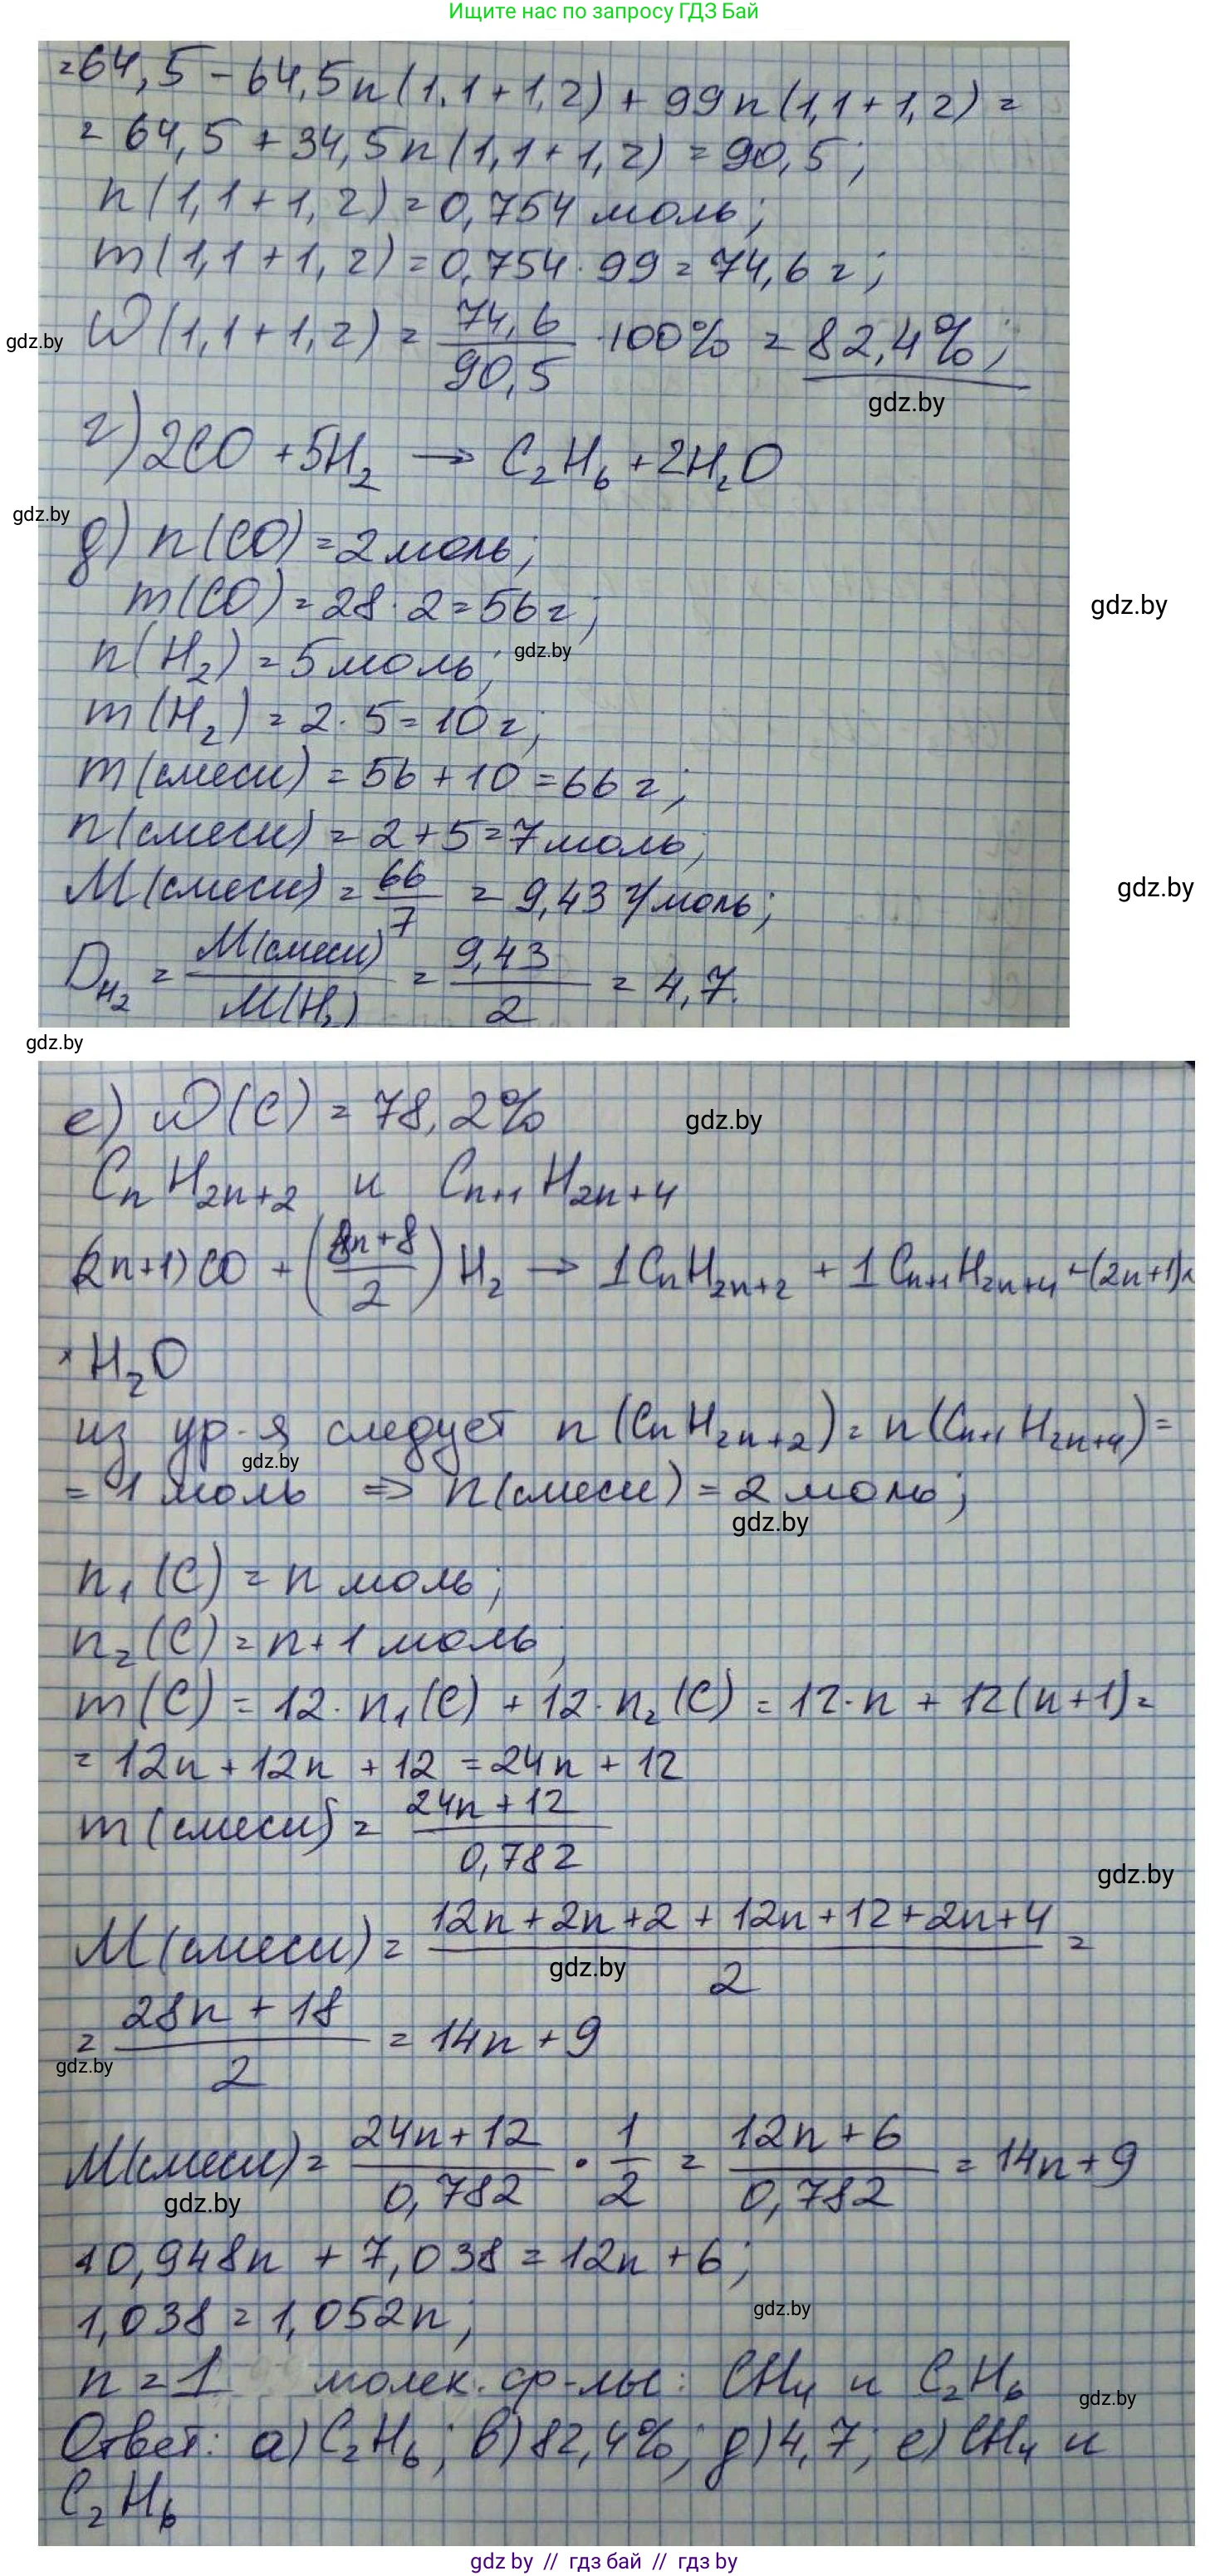 Ищите нас по запросу ГДЗ Бай
=64,5 - 64,5n(1,1+1,2) + 99n(1,1+1,2) =
= 64,5 + 34,5n(1,1+1,2) = 90,5;
n(1,1+1,2) = 0,754 моль;
m(1,1+1,2) = 0,754 · 99 = 74,6 г;
gdz.by
W(1,1+1,2) = 74,6/90,5 · 100% = 82,4%;
gdz.by
г) 2CO + 5H₂ → C₂H₆ + 2H₂O
gdz.by
д) n(CO) = 2 моль;
m(CO) = 28 · 2 = 56 г;
gdz.by
n(H₂) = 5 моль;
gdz.by
m(H₂) = 2 · 5 = 10 г;
m(смеси) = 56 + 10 = 66 г;
n(смеси) = 2 + 5 = 7 моль;
M(смеси) = 66/7 = 9,43 г/моль;
gdz.by
D_H₂ = M(смеси)/M(H₂) = 9,43/2 = 4,7.
gdz.by
е) W(C) = 78,2%
gdz.by
CₙH₂ₙ₊₂ и Cₙ₊₁H₂ₙ₊₄
(2n+1)CO + (8n+8/2)H₂ → 1CₙH₂ₙ₊₂ + 1Cₙ₊₁H₂ₙ₊₄ + (2n+1)×
×H₂O
из ур-я следует n(CₙH₂ₙ₊₂) = n(Cₙ₊₁H₂ₙ₊₄) =
gdz.by
= 1 моль ⇒ n(смеси) = 2 моль;
gdz.by
n₁(C) = n моль;
n₂(C) = n+1 моль;
m(C) = 12 · n₁(C) + 12 · n₂(C) = 12 · n + 12(n+1) =
= 12n + 12n + 12 = 24n + 12
m(смеси) = 24n + 12/0,782
gdz.by
M(смеси) = 12n + 2n + 2 + 12n + 12 + 2n + 4/2 =
gdz.by
= 28n + 18/2 = 14n + 9
gdz.by
M(смеси) = 24n + 12/0,782 · 1/2 = 12n + 6/0,782 = 14n + 9
gdz.by
10,948n + 7,038 = 12n + 6;
1,038 = 1,052n;
gdz.by
n = 1 молек. ф-лы: CH₄ и C₂H₆
gdz.by
Ответ: а) C₂H₆; в) 82,4%; д) 4,7; е) CH₄ и
C₂H₆
gdz.by // гдз бай // гдз by